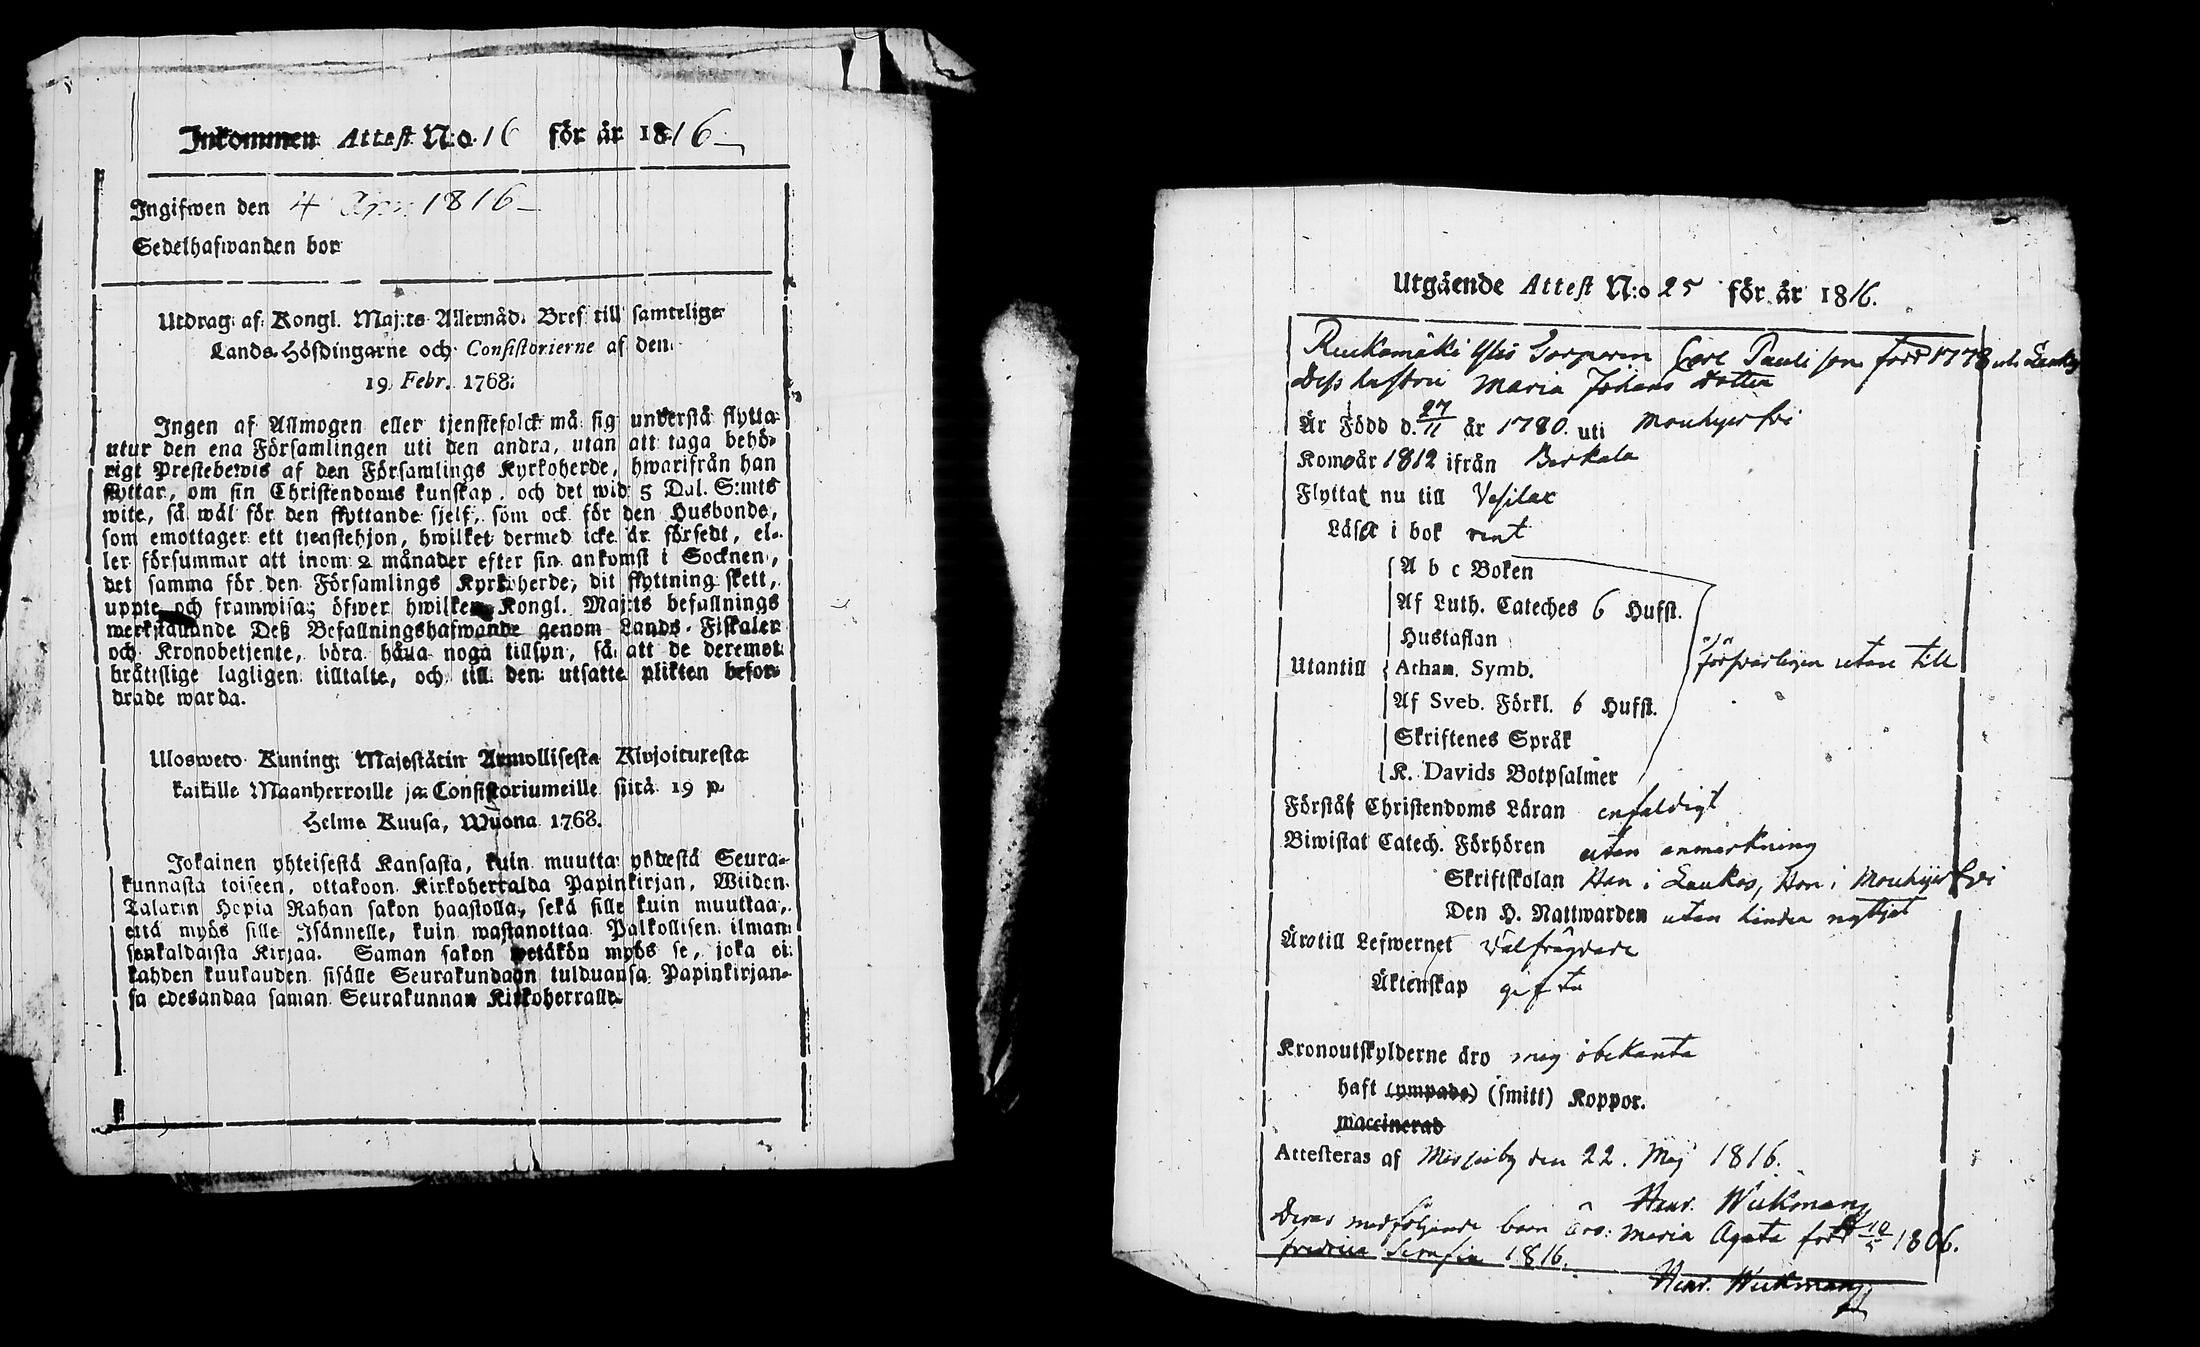 Inkommen Attest N:o 16 för år 1816
Ingifwen den 4 Apr. 1816
Sedelhafwanden bor
Utdrag af Kongl. Maj:ts Allernåd. Bref till samtelige
Lands-Höfdingarne och Consistorierne af den
19 Febr. 1768.
Ingen af Allmogen eller tjenstefolck må sig understå flytta
utur den ena Församlingen uti den andra, utan att taga behö-
rigt Prestebewis af den Församlings Kyrkoherde, hwarifrån han
flyttar, om sin Christendoms kunskap, och det wid 5 Dal. S:mts
wite, så wäl för den flyttande sjelf, som ock för den Husbonde,
som emottager ett tjenstehjon, hwilket dermed icke är försedt, el-
ler försummar att inom 2 månader efter sin ankomst i Socknen,
det samma för den Församlings Kyrkoherde, dit flyttning skett,
uppte och framwisa; öfwer hwilken Kongl. Maj:ts befallnings
werkställande Deß Befallningshafwande genom Lands-Fiskaler
och Kronobetjente, böra hålla noga tillsyn, så att de deremot
bråttslige lagligen tilltalte, och till den utsatte plikten befor-
drade warda.
Ulosweto Kuning: Majestätin Armollisesta Kirjoituxesta
kaikille Maanherroille ja Consistoriumeille siitä 19 p.
Helme Kuusa, Wuona 1768.
Jokainen yhteisestä Kansasta, kuin muutta yhdestä Seura-
kunnasta toiseen, ottakoon Kirkoherralda Papinkirjan, Wiiden
Talarin Hopia Rahan sakon haastolla, sekä sille kuin muuttaa,
että myös sille Isännelle, kuin wastanottaa Palkollisen ilman
senkaldaista Kirjaa. Saman sakon wetäkön myös se, joka ei
kahden kuukauden sisälle Seurakundaan tulduansa Papinkirjan-
sa edesandaa saman Seurakunnan Kirkoherralle.
Utgående Attest N:o 25 för år 1816.
Ruckomäki Carl Pauli son född 1778 uti
Dess hustru Maria Johans dotter
Är Född d. 27/11 år 1780. uti Mouhijerfvi
Kom år 1812 ifrån Berkala
Flyttat nu till Vesilax
Läsa i bok rent
A b c Boken
Af Luth. Cateches 6 Hufst.
Hustaflan
Utantill Athan. Symb. försvarligen utan till
Af Sveb. Förkl. 6 Hufst.
Skriftenes Språk
K. Davids Botpsalmer
Förstå Christendoms Läran enfaldigt
Biwistat Catech. Förhören utan anmerkning
Skriftskolan Han i Laukos, Hon i Mouhijerfvi
Den H. Nattwarden utan hinder nyttjat
Äro till Lefwernet välfrägdade
Äktenskap gifta
Kronoutskylderne äro mig obekanta
haft (ympade) (smitt) Koppor.
waccinerad
Attesteras af den 22. Maj 1816.
Henr. Wickman
Deras medföljande barn äro: Maria Agata född 10/5 1806.
Fredrica Serafia 1816.
Henr. Wickman